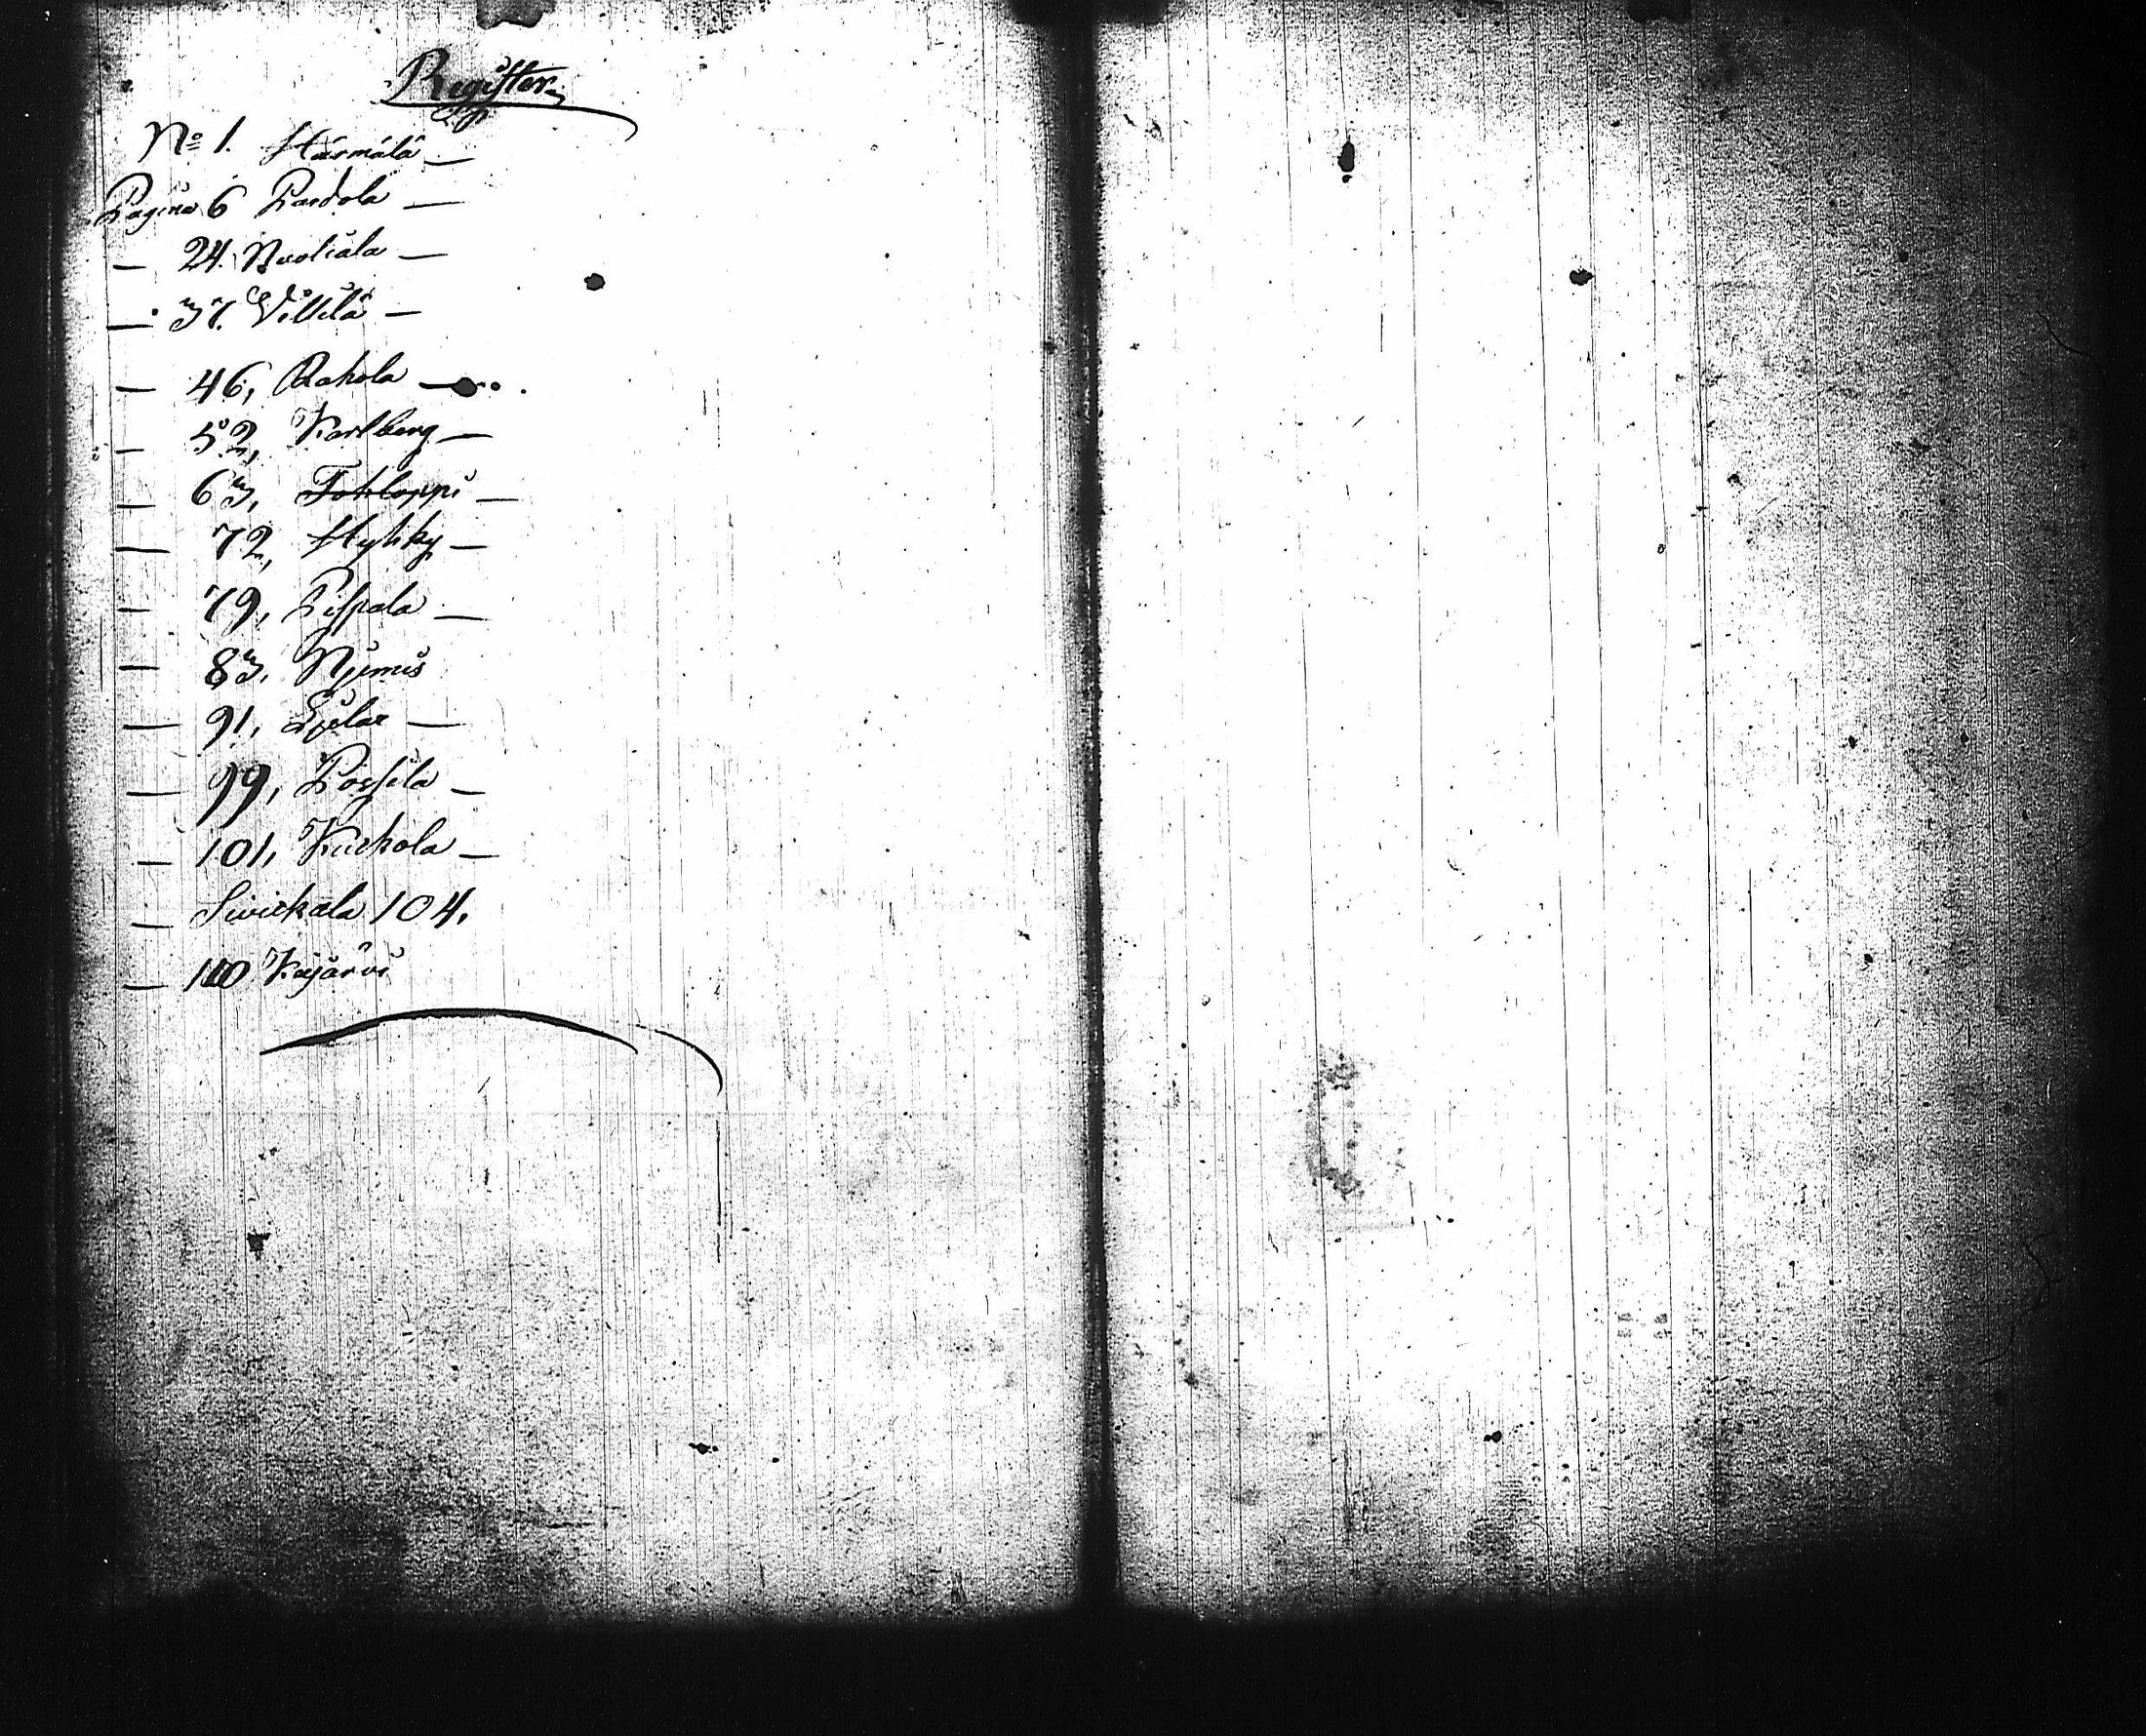 Register
Nº 1. Härmälä —
Pagina 6 Partola —
— 24. Nuoliala —
— 37. Villilä —
— 46, Rahola —
— 52, Karlberg —
— 63, Tohloppi —
— 72, Hyhky —
— 79, Pispala —
— 83,
— 91,
— 99, Possila —
— 101, Kuckola —
— Siuickala 104.
— 110 Kajärvi